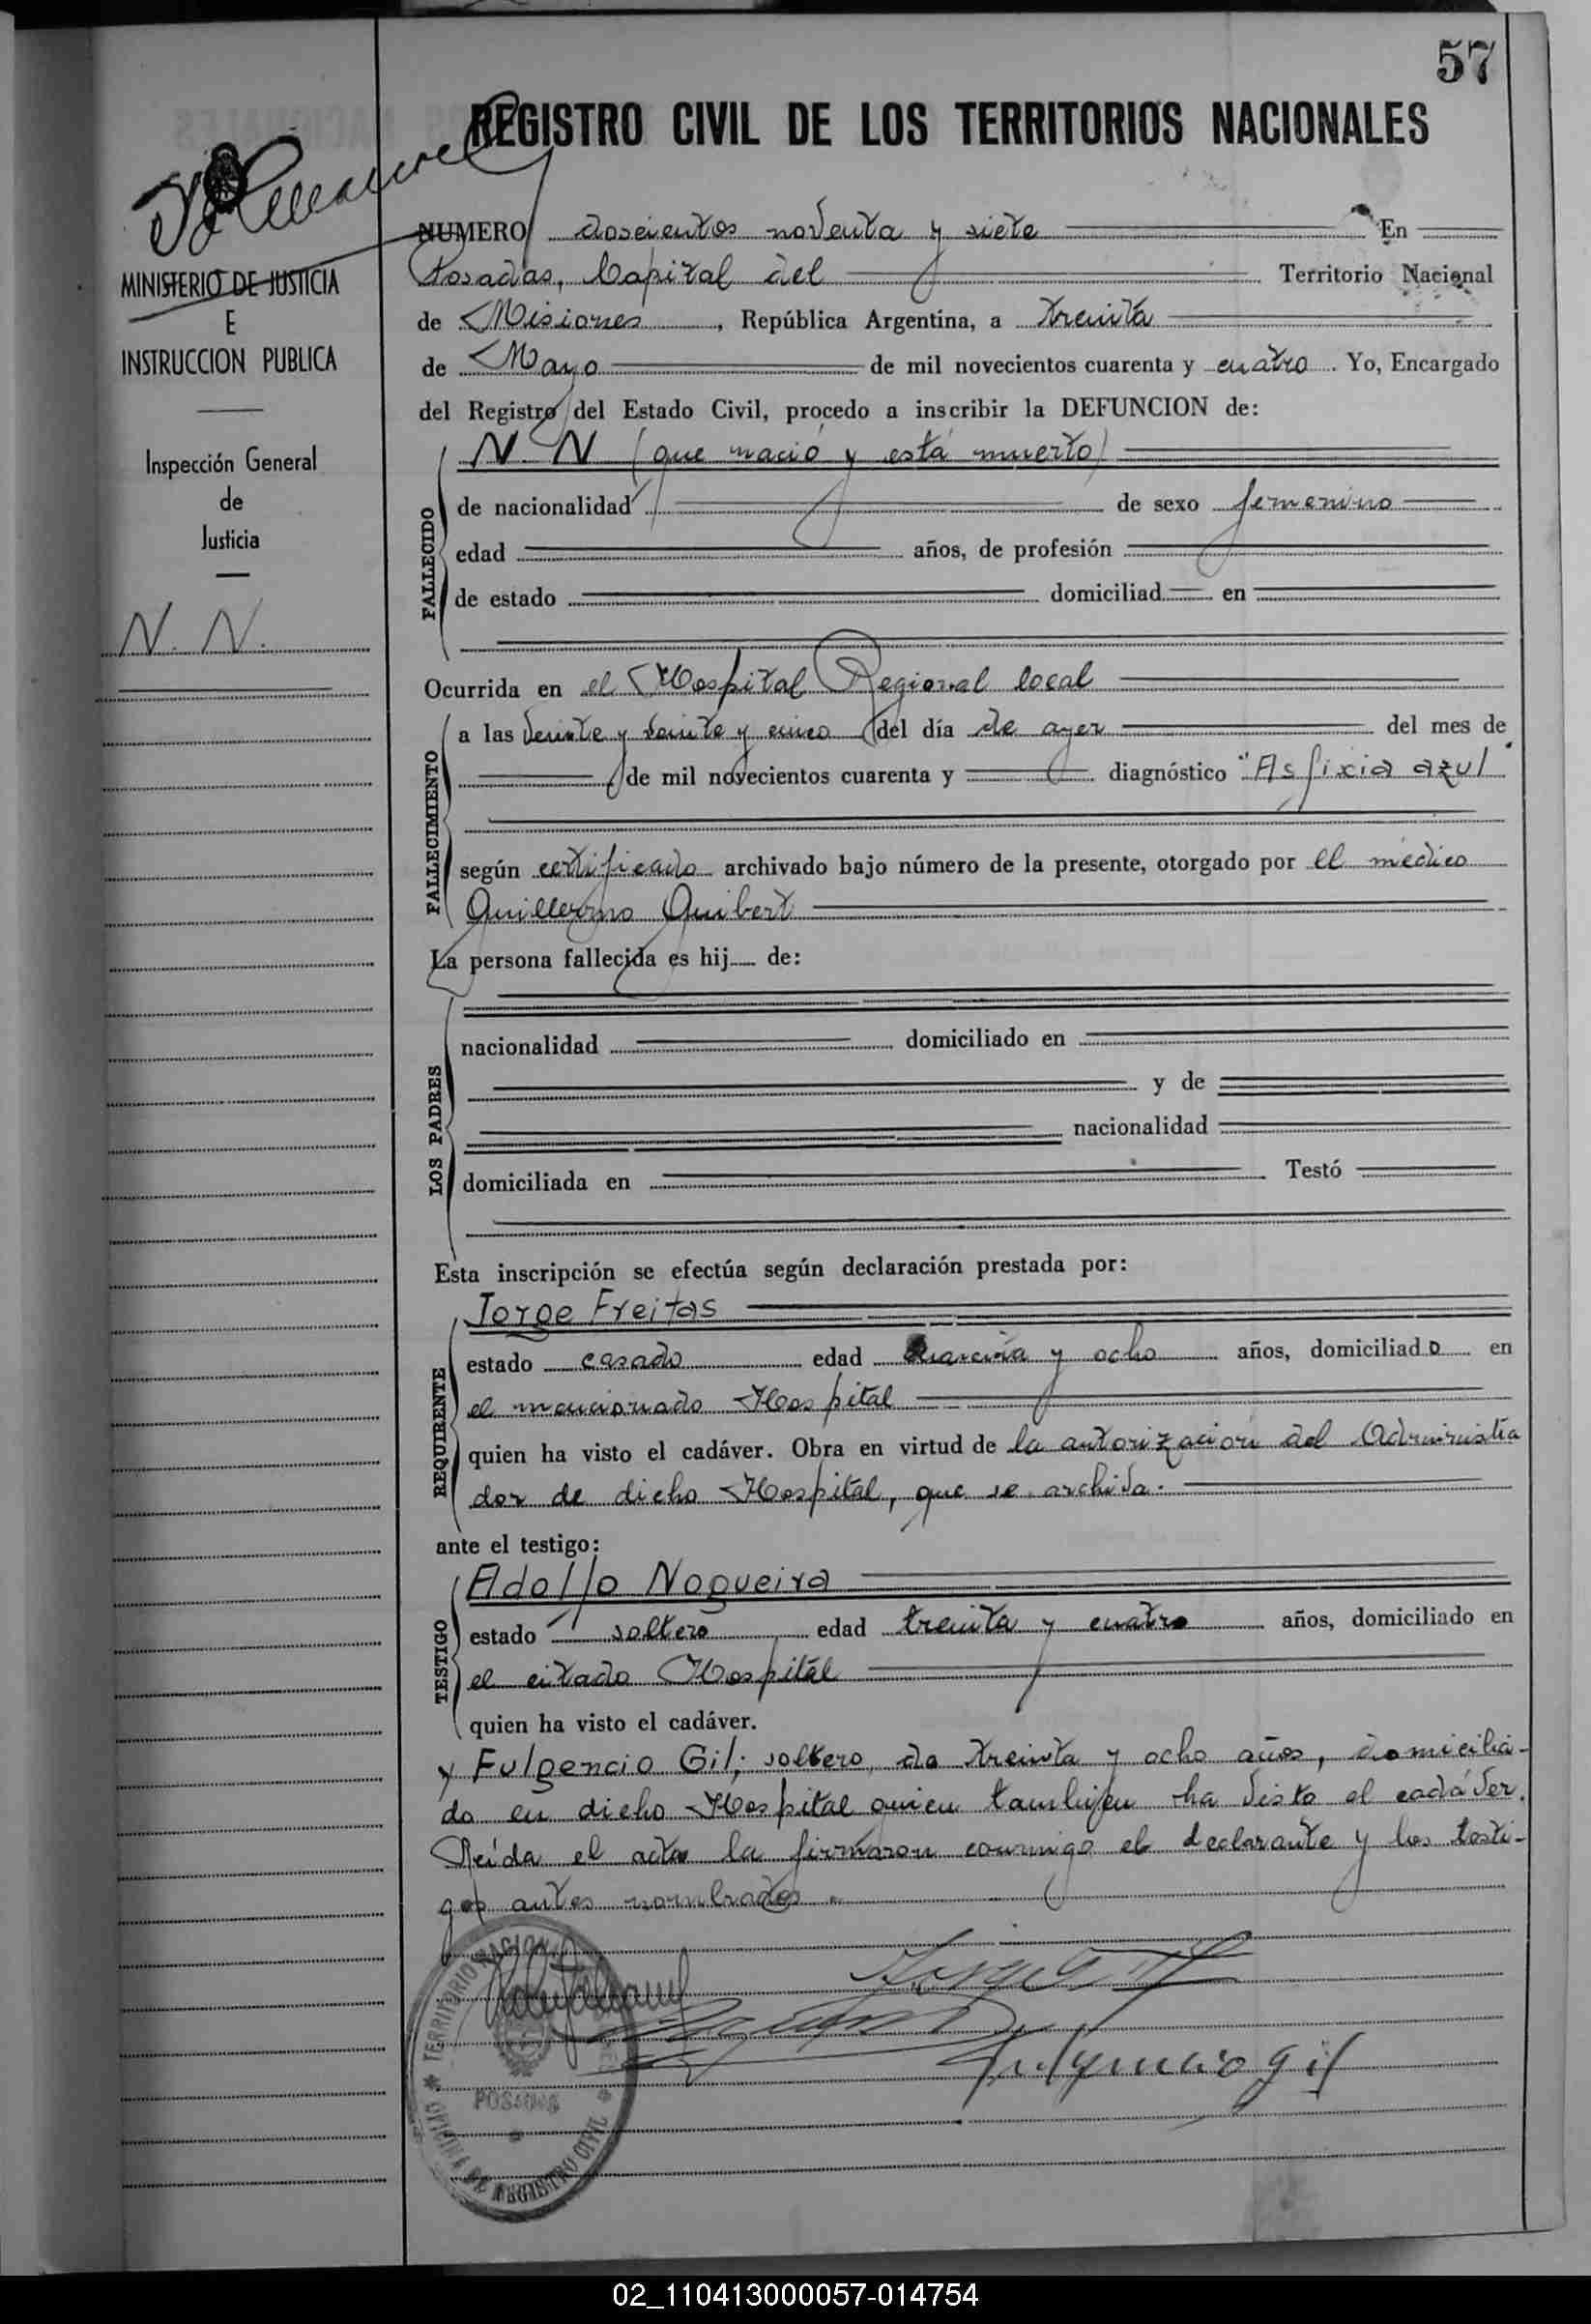 57
REGISTRO CIVIL DE LOS TERRITORIOS NACIONALES
MINISTERIO DE JUSTICIA
E
INSTRUCCION PUBLICA
Inspección General
de
Justicia
N. N.
NUMERO doscientos noventa y siete En
Posadas, Capital del Territorio Nacional
de Misiones, República Argentina, a treinta
de Mayo de mil novecientos cuarenta y cuatro. Yo, Encargado
del Registro del Estado Civil, procedo a inscribir la DEFUNCION de:
FALLECIDO
N. N (que nació y está muerto)
de nacionalidad de sexo femenino
edad años, de profesión
de estado domiciliad en
Ocurrida en el Hospital Regional local
FALLECIMIENTO
a las veinte y veinte y cinco del día de ayer del mes de
de mil novecientos cuarenta y diagnóstico "Asfixia azul"
según certificado archivado bajo número de la presente, otorgado por el médico
Guillermo Guibert
La persona fallecida es hij de:
LOS PADRES
nacionalidad domiciliado en
y de
nacionalidad
domiciliada en Testó
Esta inscripción se efectúa según declaración prestada por:
REQUIRENTE
Jorge Freitas
estado casado edad y ocho años, domiciliado en
el mencionado Hospital
quien ha visto el cadáver. Obra en virtud de la autorización del Administra
dor de dicho Hospital, que se archiva.
ante el testigo:
TESTIGO
Adolfo Nogueira
estado soltero edad treinta y cuatro años, domiciliado en
el citado Hospital
quien ha visto el cadáver.
y Fulgencio Gil; soltero, de treinta y ocho años, domicilia-
do en dicho Hospital quien tambien ha visto el cadáver.
Leída el acta la firmaron conmigo el declarante y los testi-
gos antes nombrados.
Fulgencio gil
TERRITORIO NACIONAL
POSADAS
OFICINA DE REGISTRO CIVIL
02_110413000057-014754